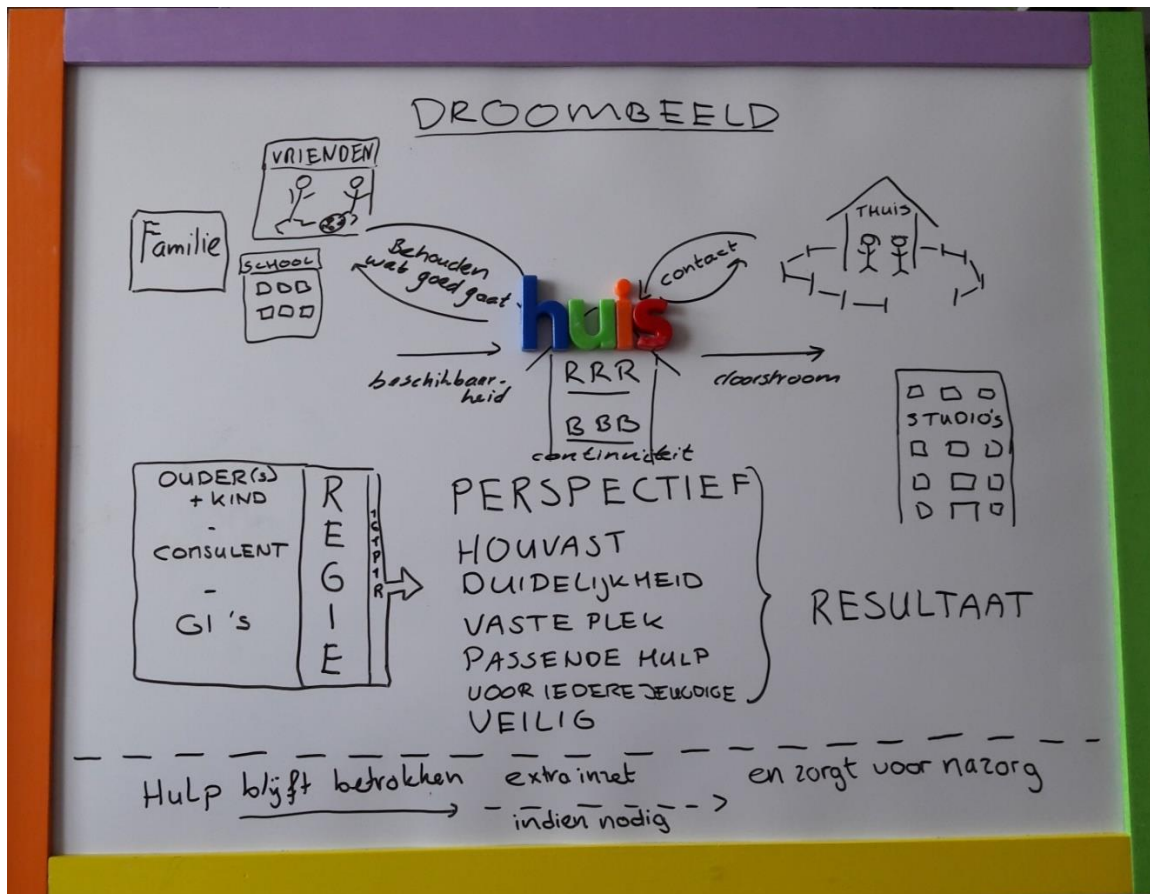 DROOMBEELD
VRIENDEN
Familie
SCHOOL
Behouden
wat goed gaat
contact
THUIS
huis
beschikbaar-
heid
RRR
BBB
continuiteit
doorstroom
STUDIO'S
OUDER(S)
+ KIND
-
CONSULENT
-
GI's
REGIE
PERSPECTIEF
HOUVAST
DUIDELIJKHEID
VASTE PLEK
PASSENDE HULP
VOOR IEDERE JEUGDIGE
VEILIG
RESULTAAT
Hulp blijft betrokken
extra inzet
indien nodig
en zorgt voor nazorg